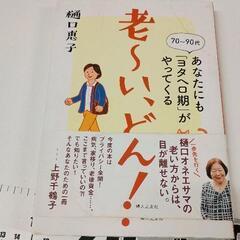 樋口恵子
老〜い、どん!
70〜90代
あなたにも
「ヨタヘロ期」が
やってくる
今度の本は
プライバシー全開!
病気、家移り、老後資金……
ここまで言っていいの?
でも知りたい!
そんなあなたのための一冊
――上野千鶴子
樋口オネエサマの
老い方からは、
目が離せない。
婦人之友社
13
14